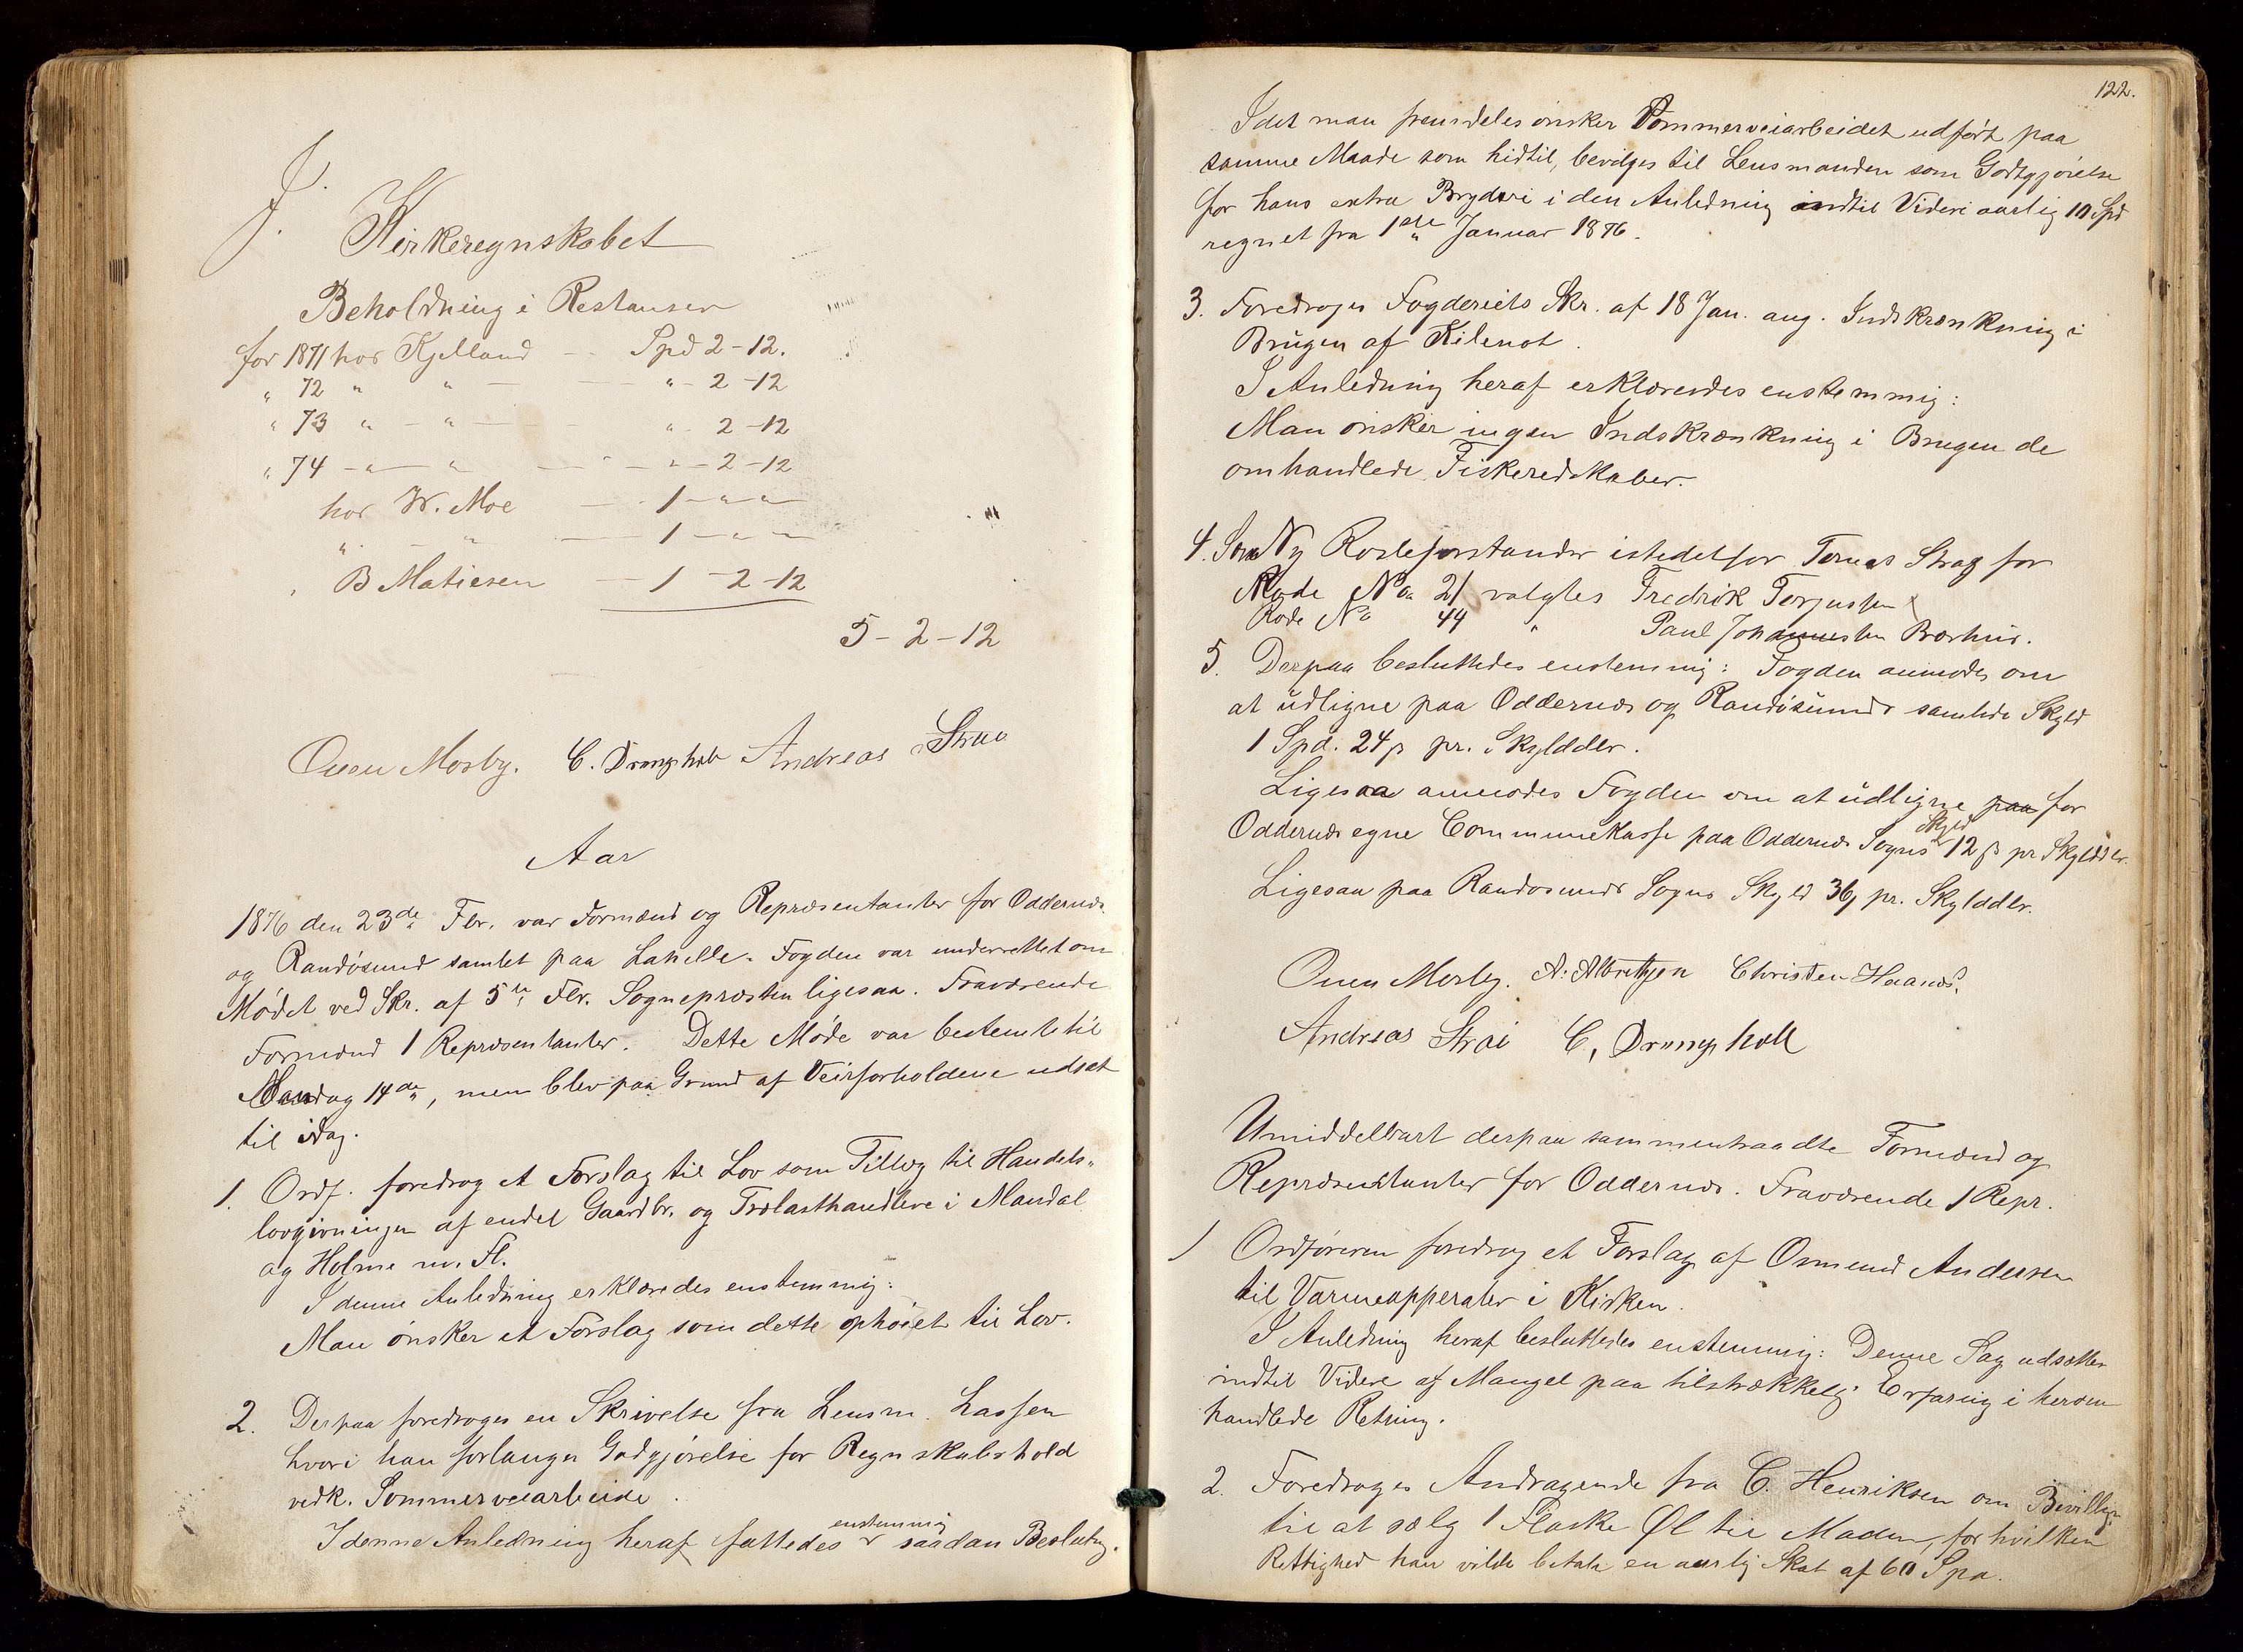 J.
Kirkeregnskabet
Beholdning i Restanser
for 1871 hos Kjelland - - Spd 2-12.
" 72 " " - " - 2-12
" 73 " - " - " - 2-12
" 74 - " - " - - " - 2-12
hos W. Moe - 1 - " "
" - " - 1 - " -
B Matiesen - 1 - 2 - 12
5 - 2 - 12
Ouen Mosby. C. Drangsholt Andreas Straai
Aar
1876 den 23de Fbr. var Formænd og Repræsentanter for Oddernæs
og Randøsund samlet paa Lahelle. Fogden var underrettet om
Mødet ved Skr. af 5te Fbr. Sognepræsten ligesaa. Fraværende
Formænd 1 Repræsentanter. Dette Møde var bestemt til
Mandag 14de, men blev paa Grund af Veirforholdene udsat
til idag.
1. Ordf. foredrog et Forslag til Lov som Tillæg til Handels-
lovgivningen af endel Gaardbr. og Trælasthandlere i Mandal
og Holme m. Fl.
I denne Anledning erklæredes enstemmig:
Man ønsker et Forslag som dette ophøiet til Lov.
2. Derpaa foredroges en Skrivelse fra Lensm. Lassen
hvori han forlanger Godgjørelse for Regnskabshold
vedk. Sommerveiarbeide.
I denne Anledning heraf fattedes enstemmig saadan Beslutng.
122.
Idet man fremdeles ønsker Sommerveiarbeidet udført paa
samme Maade som hidtil, bevilges til Lensmanden som Godtgjørelse
for hans extra Bryderi i den Anledning indtil Videre aarlig 10 Spd
regnet fra 1ste Januar 1876.
3. Foredroges Fogderiets Skr. af 18 Jan. ang. Indskrænkning i
Brugen af Kilenot.
I Anledning heraf erklæredes enstemmig:
Man ønsker ingen Indskrænkning i Brugen de
omhandlede Fiskeredskaber.
4. Som Ny Rodeforstander istedetfor Tomas Strag for
Rode No 21 valgtes Fredrik Torjussen
Rode No 44 " Paul Johannesen Bærhus.
5. Derpaa besluttedes enstemmig: Fogden anmodes om
at udligne paa Oddernæs og Randøsunds samlede Skyld
1 Spd. 24 ß pr. Skylddlr.
Ligesaa anmodes Fogden om at udligne paa for
Oddernæs egne Communekasse paa Oddernæs Sogns Skyld 12 ß pr Skylddlr.
Ligesaa paa Randøsunds Sogns Skyld 36 ß pr. Skylddlr.
Ouen Mosby. A. Albretsen Christen Haanæs.
Andreas Strai C. Drangsholt
Umiddelbart derpaa sammentraadte Formænd og
Repræsentanter for Oddernæs. Fraværende 1 Repr.
1 Ordføreren foredrog et Forslag af Osmund Andersen
til Varmeapperater i Kirken.
I Anledning heraf besluttedes enstemmig: Denne Sag udsættes
indtil Videre af Mangel paa tilstrækkelig Erfaring i herom-
handlede Retning.
2. Foredroges Andragende fra C. Henriksen om Bevillgn.
til at sælg 1 Flaske Øl til Maden, for hvilken
Rettighed han vilde betale en aarlig Skat af 60 Spd.